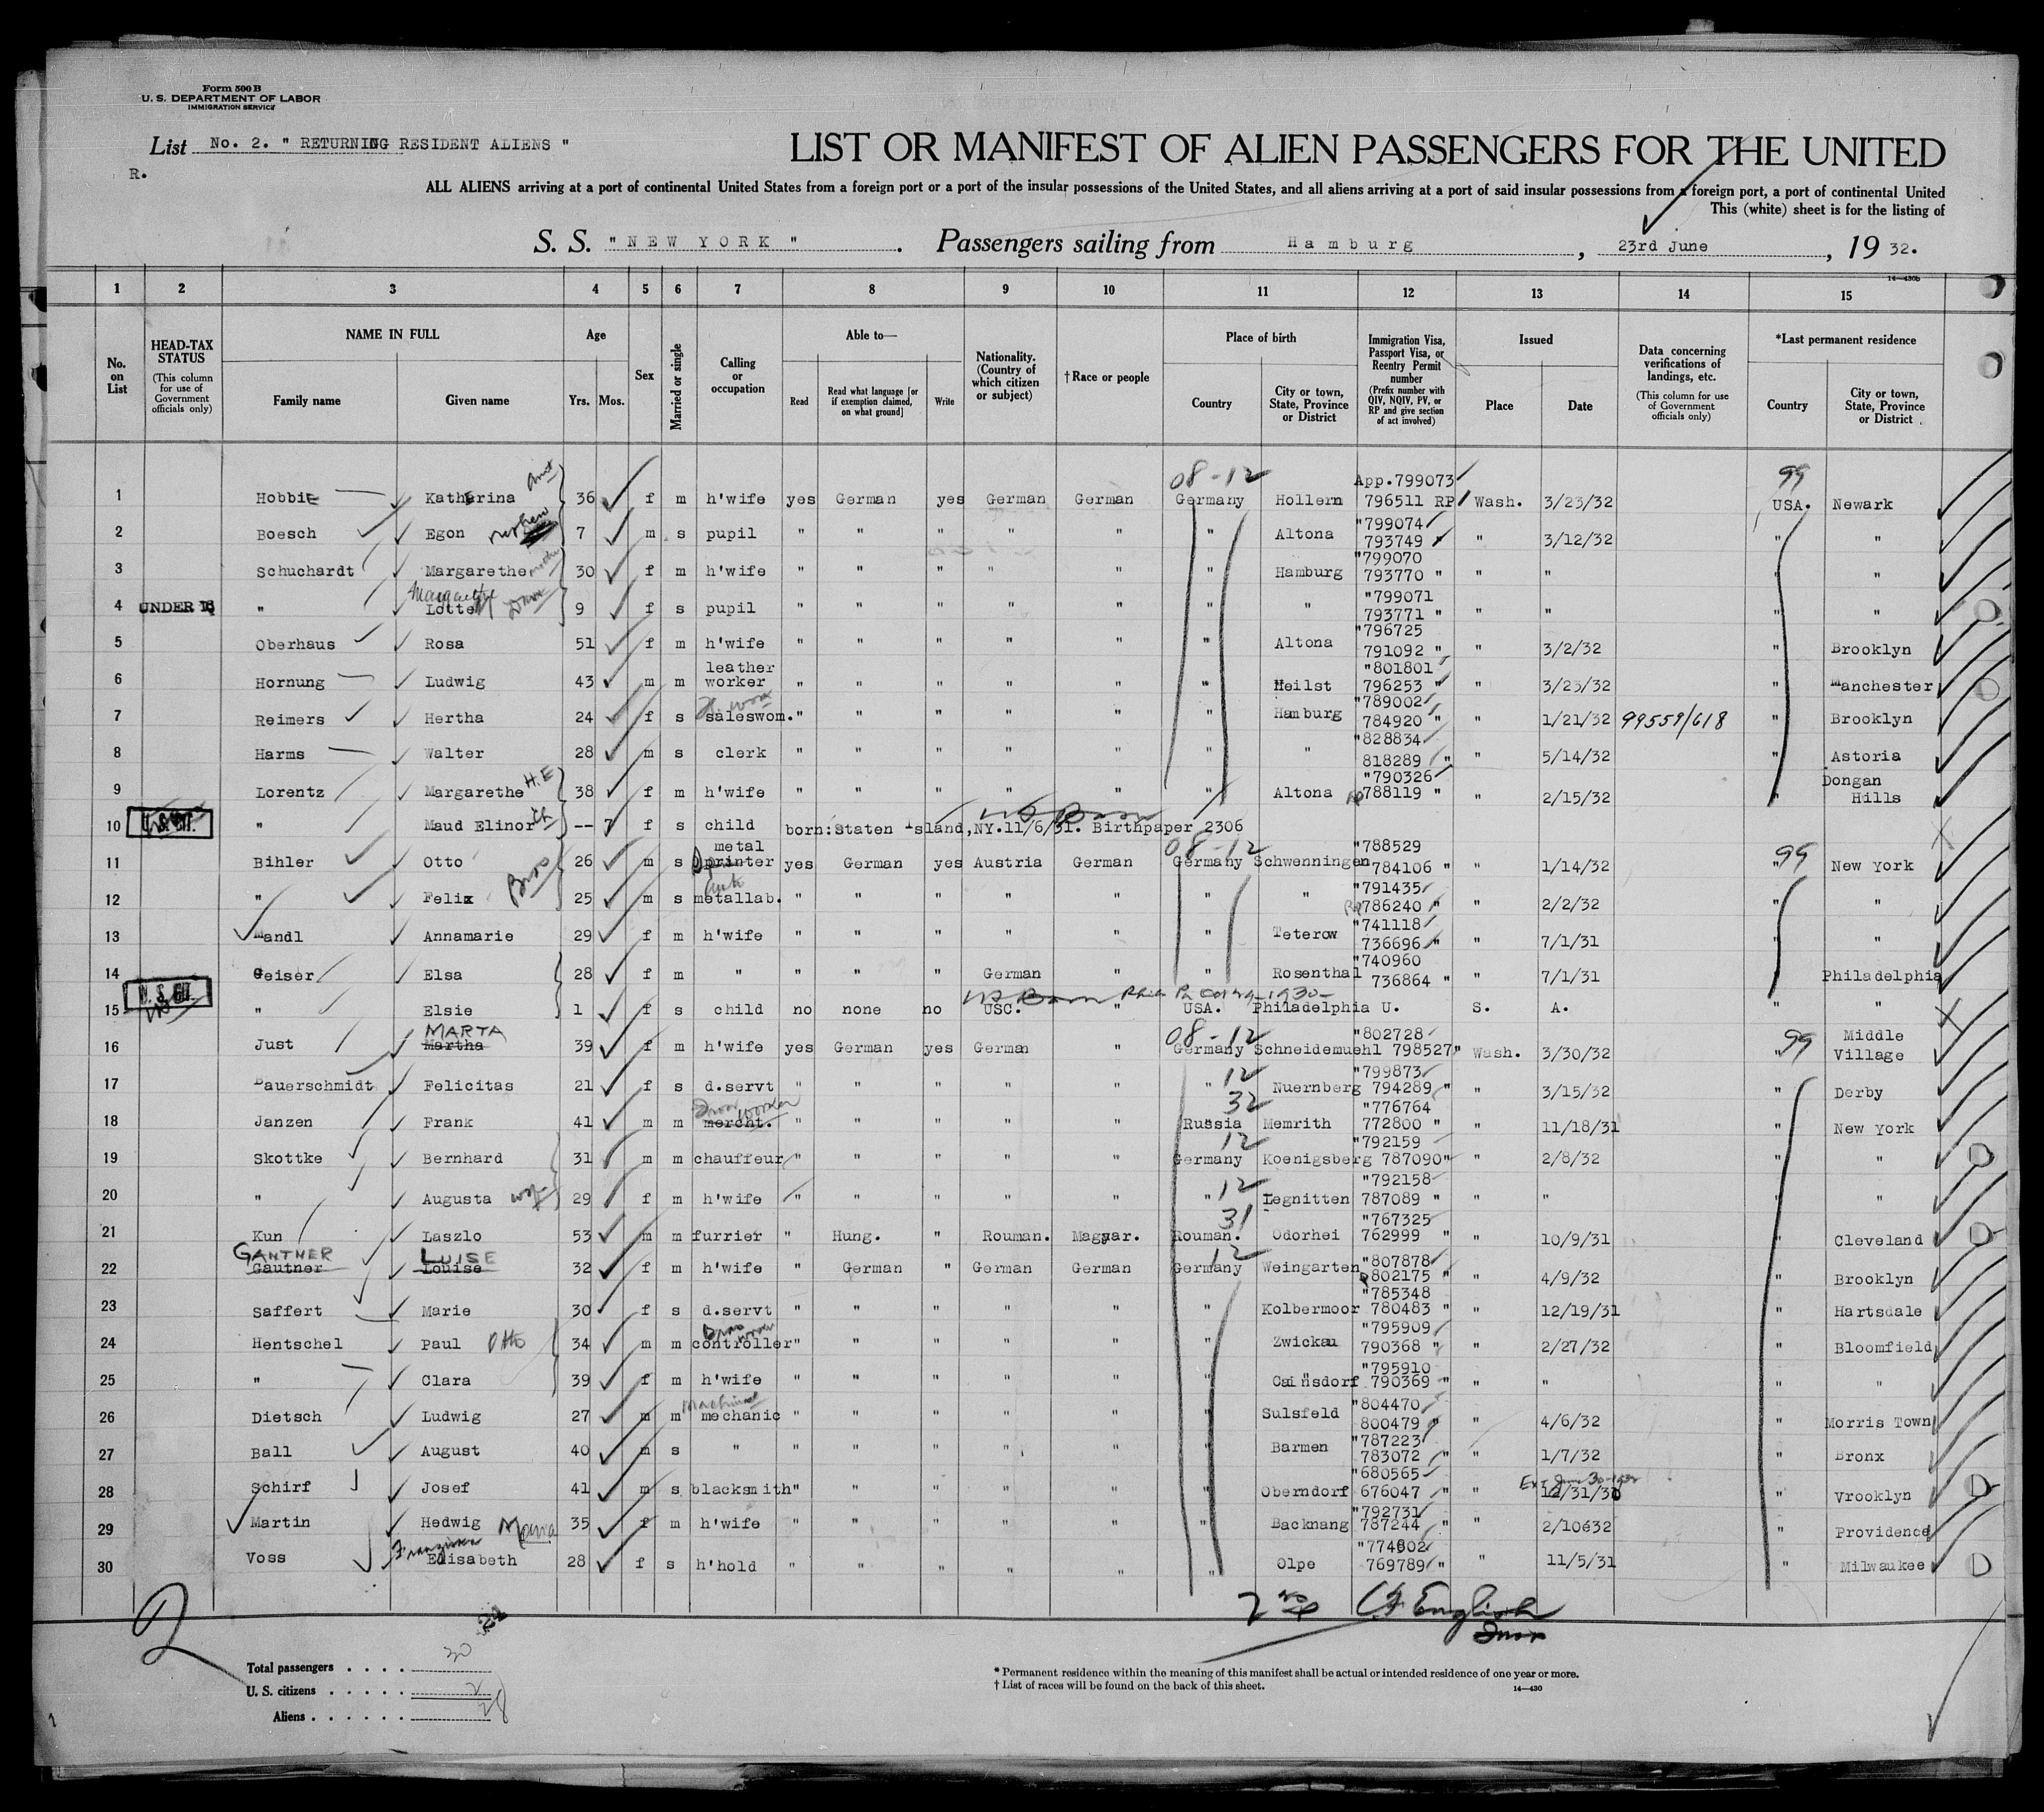 Form 500 B
U. S. DEPARTMENT OF LABOR
IMMIGRATION SERVICE
List No. 2. " RETURNING RESIDENT ALIENS "
R.
LIST OR MANIFEST OF ALIEN PASSENGERS FOR THE UNITED
ALL ALIENS arriving at a port of continental United States from a foreign port or a port of the insular possessions of the United States, and all aliens arriving at a port of said insular possessions from a foreign port, a port of continental United
This (white) sheet is for the listing of
S. S. " NEW YORK ". Passengers sailing from Hamburg, 23rd June, 19 32.
14—430b
1 2 3 4 5 6 7 8 9 10 11 12 13 14 15
No. on List
HEAD-TAX STATUS (This column for use of Government officials only)
NAME IN FULL
Family name Given name
Age
Yrs. Mos.
Sex
Married or single
Calling or occupation
Able to—
Read Read what language [or if exemption claimed, on what ground] Write
Nationality. (Country of which citizen or subject)
†Race or people
Place of birth
Country City or town, State, Province or District
Immigration Visa, Passport Visa, or Reentry Permit number (Prefix number with QIV, NQIV, PV, or RP and give section of act involved)
Issued
Place Date
Data concerning verifications of landings, etc. (This column for use of Government officials only)
*Last permanent residence
Country City or town, State, Province or District
08-12 App.799073 99
1 Hobbie Katherina Aunt 36 f m h'wife yes German yes German German Germany Hollern 796511 RP Wash. 3/23/32 USA. Newark
2 Boesch Egon nephew 7 m s pupil " " " " " " Altona "799074 793749 " " 3/12/32 " "
3 Schuchardt Margarethe mother 30 f m h'wife " " " " " " Hamburg "799070 793770 " " " " "
4 UNDER 16 " Margarethe Lotte 9 f s pupil " " " " " " " "799071 793771 " " " " "
5 Oberhaus Rosa 51 f m h'wife " " " " " " Altona "796725 791092 " " 3/2/32 " Brooklyn
6 Hornung Ludwig 43 m m leather worker " " " " " " Heilst "801801 796253 " " 3/23/32 " Manchester
7 Reimers Hertha 24 f s saleswom. " " " " " " Hamburg "789002 784920 " " 1/21/32 99559/618 " Brooklyn
8 Harms Walter 28 m s clerk " " " " " " " "828834 818289 " " 5/14/32 " Astoria
9 Lorentz Margarethe H.E 38 f m h'wife " " " " " " Altona "790326 788119 " " 2/15/32 " Dongan Hills
10 U. S. CIT. " Maud Elinor ch -- 7 f s child born:Staten Island,NY.11/6/31. Birthpaper 2306 US Born
11 Bihler Otto Bros 26 m s metal printer yes German yes Austria German 08-12 Germany Schwenningen "788529 784106 " " 1/14/32 99 " New York
12 " Felix 25 m s metallab. " " " " " " " "791435 786240 " " 2/2/32 " "
13 Mandl Annamarie 29 f m h'wife " " " " " " Teterow "741118 736696 " " 7/1/31 " "
14 Geiser Elsa 28 f m " " " " German " " Rosenthal "740960 736864 " " 7/1/31 " Philadelphia
15 U. S. CIT. " Elsie 1 f s child no none no USC. " USA. Philadelphia U. S. A. " " US Born
16 Just MARTA Martha 39 f m h'wife yes German yes German " 08-12 Germany Schneidemuehl "802728 798527 " Wash. 3/30/32 99 " Middle Village
17 Bauerschmidt Felicitas 21 f s d.servt " " " " " " 12 Nuernberg "799873 794289 " " 3/15/32 " Derby
18 Janzen Frank 41 m m mercht. " " " " " 32 Russia Memrith "776764 772800 " " 11/18/31 " New York
19 Skottke Bernhard 31 m m chauffeur " " " " " 12 Germany Koenigsberg "792159 787090" " 2/8/32 " "
20 " Augusta wife 29 f m h'wife " " " " " " 12 Legnitten "792158 787089 " " " " "
21 Kun Laszlo 53 m m furrier " Hung. " Rouman. Magyar. 31 Rouman. Odorhei "767325 762999 " " 10/9/31 " Cleveland
22 GANTNER Gautner LUISE Louise 32 f m h'wife " German " German German 12 Germany Weingarten "807878 802175 " " 4/9/32 " Brooklyn
23 Saffert Marie 30 f s d.servt " " " " " " Kolbermoor "785348 780483 " " 12/19/31 " Hartsdale
24 Hentschel Paul Otto 34 m m controller " " " " " " Zwickau "795909 790368 " " 2/27/32 " Bloomfield
25 " Clara 39 f m h'wife " " " " " " Cainsdorf "795910 790369 " " " " "
26 Dietsch Ludwig 27 m m machinist mechanic " " " " " " Sulsfeld "804470 800479 " " 4/6/32 " Morris Town
27 Ball August 40 m s " " " " " " " Barmen "787223 783072 " " 1/7/32 " Bronx
28 Schirf Josef 41 m s blacksmith " " " " " " Oberndorf "680565 676047 " " Ex June 30-1932 12/31/30 " Vrooklyn
29 Martin Hedwig Maria 35 f m h'wife " " " " " " Backnang "792731 787244 " " 2/10632 " Providence
30 Voss Franziska Elisabeth 28 f s h'hold " " " " " " Olpe "774802 769789 " " 11/5/31 " Milwaukee
2nd English
Total passengers . . . . 30
U. S. citizens . . . . . 2
Aliens . . . . . . 28
* Permanent residence within the meaning of this manifest shall be actual or intended residence of one year or more.
† List of races will be found on the back of this sheet.
14—430